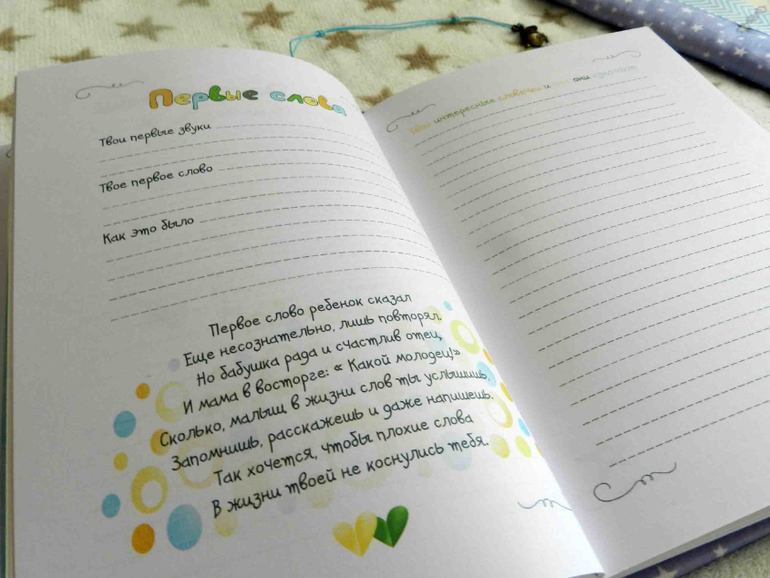 Первые слова
Твои первые звуки
Твое первое слово
Как это было
Первое слово ребенок сказал
Еще несознательно, лишь повторял.
Но бабушка рада и счастлив отец,
И мама в восторге: « Какой молодец!»
Сколько, малыш, в жизни слов ты услышишь,
Запомнишь, расскажешь и даже напишешь.
Так хочется, чтобы плохие слова
В жизни твоей не коснулись тебя.
интересные словечки и они